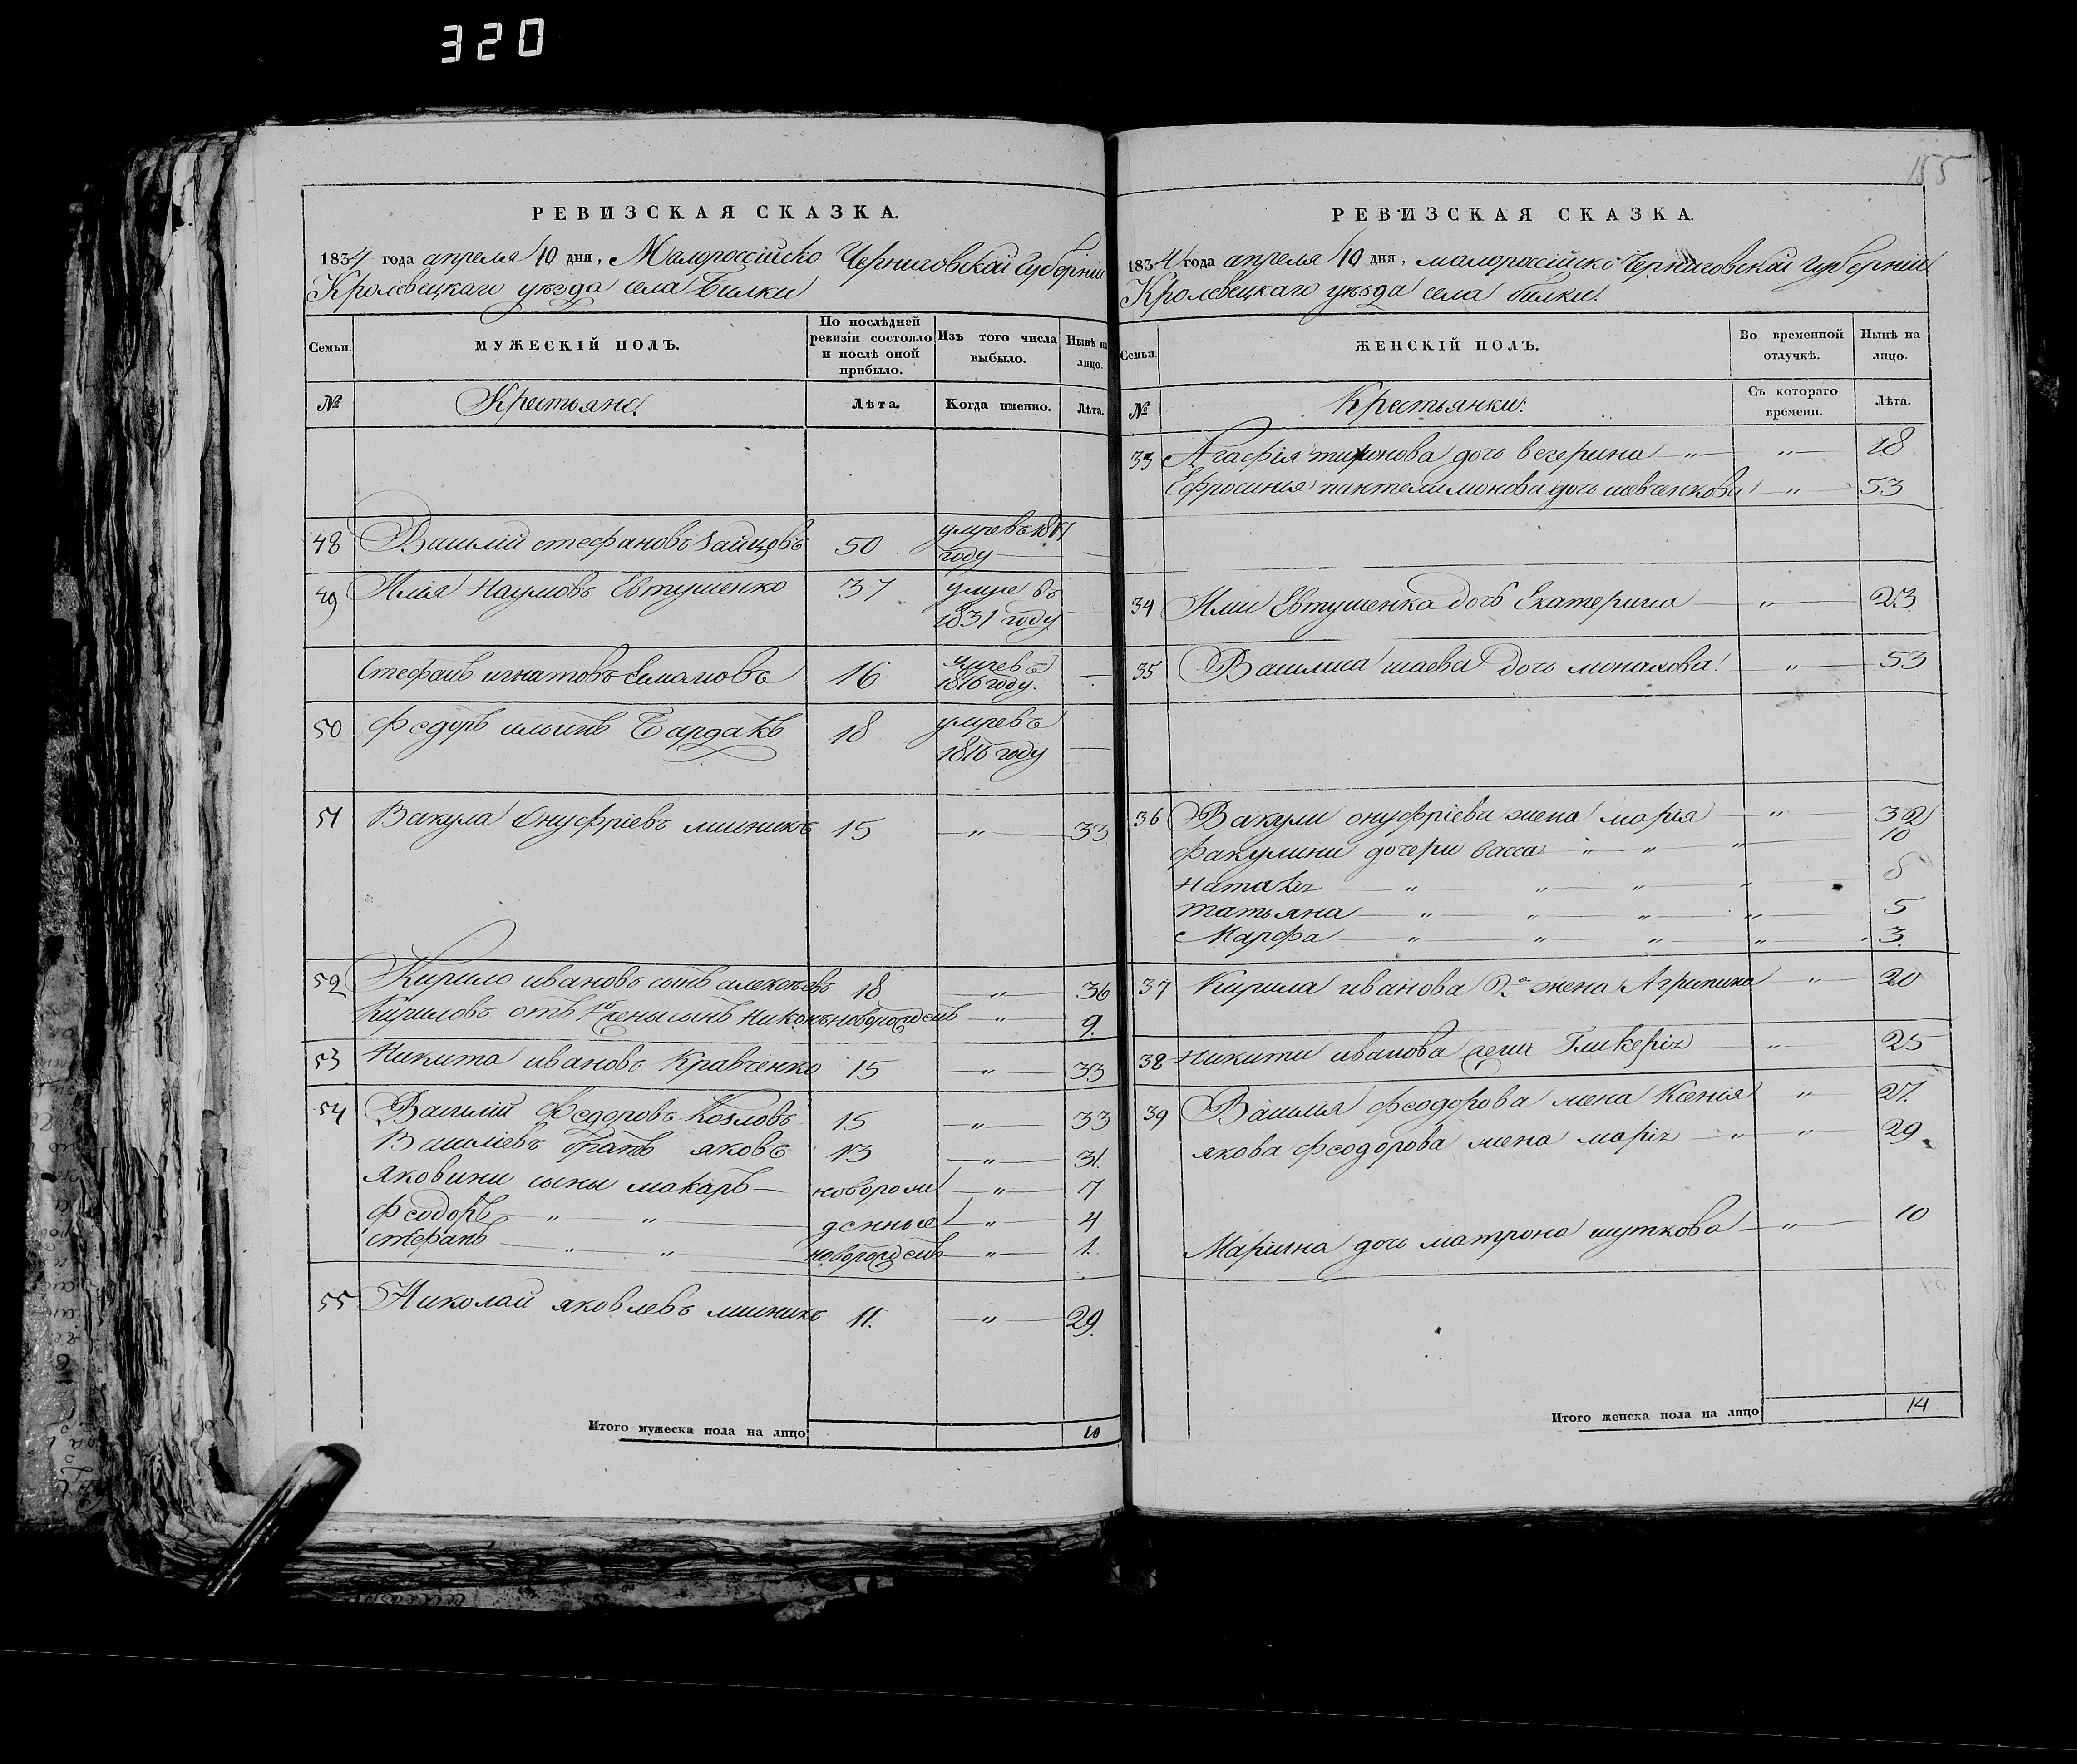 320
185
РЕВИЗСКАЯ СКАЗКА.
1834 года апреля 10 дня, Малороссійско Черниговской Губерніи
Кролевецкаго уезда села Билки
Семьи.
МУЖЕСКІЙ ПОЛЪ.
По послѣдней ревизіи состояло и послѣ оной прибыло.
Изъ того числа выбыло.
Нынѣ на лицо.
№
Крестьяне.
Лѣта.
Когда именно.
Лѣта.
48 Василий стефановъ Зайцовъ 50 умревъ 1817
году —
49 Илия Наумовъ Евтушенко 37 умре въ
1831 году —
Стефанъ игнатовъ 16 умревъ
1816 году. —
50 Федоръ ильинъ Бардакъ 18 умревъ
1816 году —
51 Вакула Онуфріевъ мишикъ 15 — „ — 33
52 Кирило ивановъ сынъ алексеевъ 18 — „ — 36
Кириловъ отъ 1й жены сынъ Никонъ новорожденъ — „ — 9.
53 Никита ивановъ Кравченко 15 — „ — 33
54 Василий Федоровъ Козловъ 15 — „ — 33
Василіевъ братъ яковъ 13 — „ — 31.
яковини сыны макаръ — новорожденные — „ — 7
Феодоръ — „ — „ — „ — 4
стефанъ — „ — „ — новорожденъ — „ — 1.
55 Николай яковлевъ мишикъ 11. — „ — 29.
Итого мужеска пола на лицо 10
РЕВИЗСКАЯ СКАЗКА.
1834 года апреля 10 дня, малороссійско Черниговской Губерніи
Кролевецкаго уезда села билки.
Семьи.
ЖЕНСКІЙ ПОЛЪ.
Во временной отлучкѣ.
Нынѣ на лицо.
№
Крестьянки:
Съ котораго времени.
Лѣта.
33 Агафія дочь вечерина — „ — „ — 18
Ефросиния пантелимонова дочь шевченкова — „ — 53
34 Иліи Евтушенка дочь Екатерина — „ — 23
35 Василиса дочь монахова — „ — 53
36 Вакули онуфріева жена марія — „ — 32
Факулини дочери васса — „ — „ — „ 10
Наталія — „ — „ — „ — „ — 8
татьяна — „ — „ — „ — „ — 5
Марфа — „ — „ — „ — „ — 3.
37 Кирила иванова 2я жена Агрипина — „ — 20
38 Никити иванова жена Гликерія — „ — 25
39 Василия феодорова жена Ксенія „ — 27.
якова феодорова жена марія — „ — „ — 29
Мариина дочь матрона шуткова — „ — 10
Итого женска пола на лицо 14